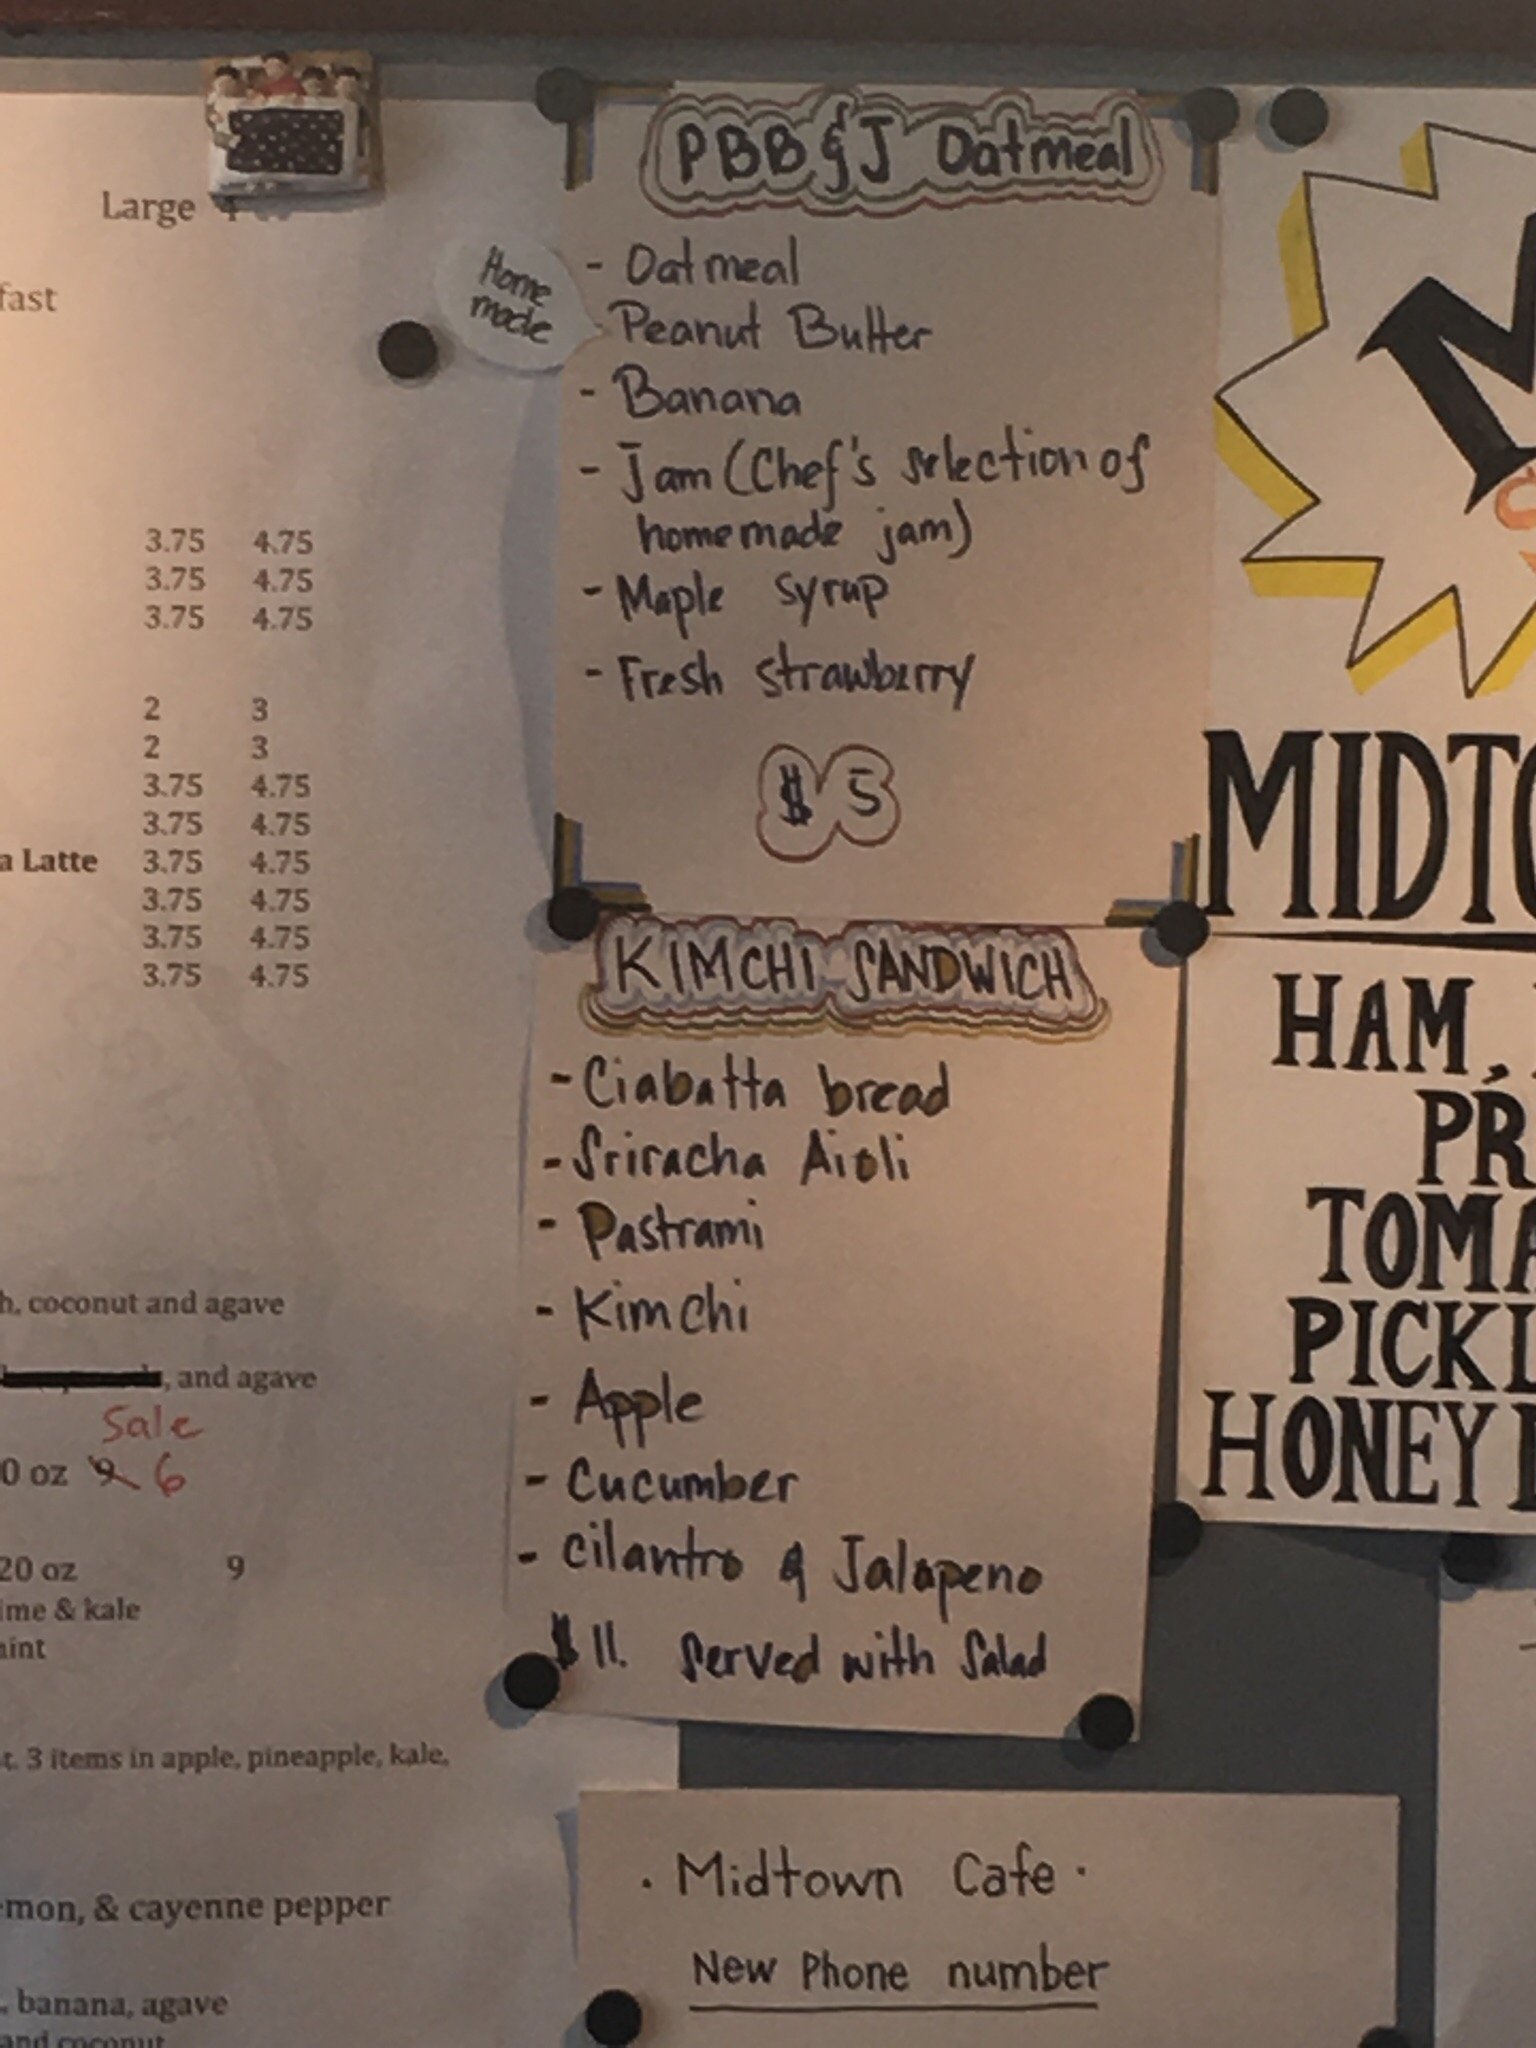 Large 4
fast
3.75 4.75
3.75 4.75
3.75 4.75
2 3
2 3
3.75 4.75
3.75 4.75
a Latte 3.75 4.75
3.75 4.75
3.75 4.75
3.75 4.75
h, coconut and agave
, and agave
Sale
0 oz 9 6
20 oz 9
ime & kale
int
t. 3 items in apple, pineapple, kale,
mon, & cayenne pepper
, banana, agave
and coconut
PBB & J Oatmeal
Home
made
- Oatmeal
- Peanut Butter
- Banana
- Jam (Chef's selection of
homemade jam)
- Maple syrup
- Fresh strawberry
$5
KIMCHI SANDWICH
- Ciabatta bread
- Sriracha Aioli
- Pastrami
- Kimchi
- Apple
- Cucumber
- cilantro & Jalapeno
$11. Served with Salad
· Midtown Cafe ·
New Phone number
M
MIDTO
HAM,
PR
TOMA
PICKL
HONEY